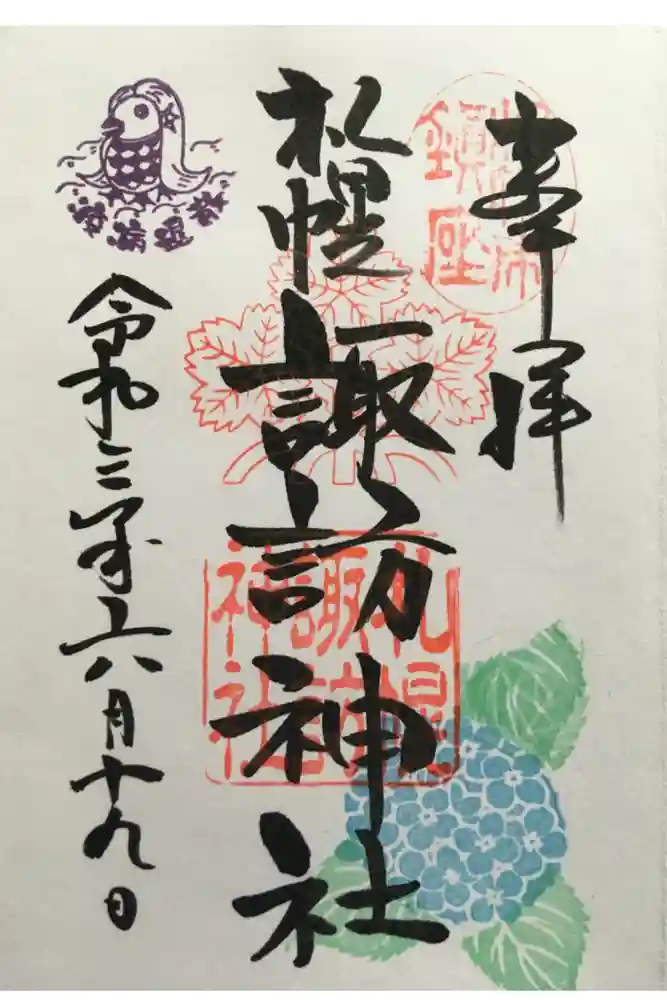 奉拝
鎮座
札幌諏訪神社
札幌諏訪神社
疫病退散
令和三年六月十九日